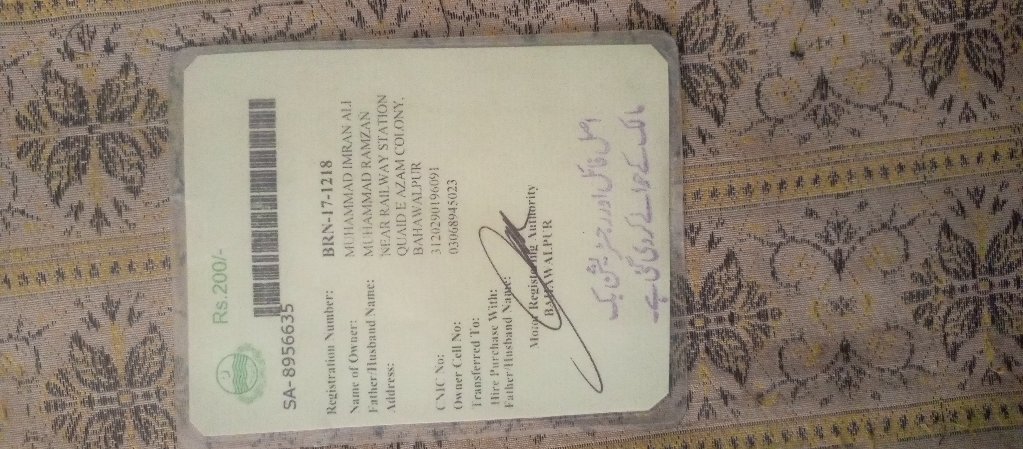 Rs.200/-
SA-8956635
Registration Number: BRN-17-1218
Name of Owner: MUHAMMAD IMRAN ALI
Father/Husband Name: MUHAMMAD RAMZAN
Address: NEAR RAILWAY STATION
QUAID E AZAM COLONY,
BAHAWALPUR
CNIC No: 3120290196091
Owner Cell No: 03068945023
Transferred To:
Hire Purchase With:
Father/Husband Name:
Motor Registering Authority
BAHAWALPUR
اصل فائل اور رجسٹریشن بک
مالک کے حوالے کر دی گئی ہے